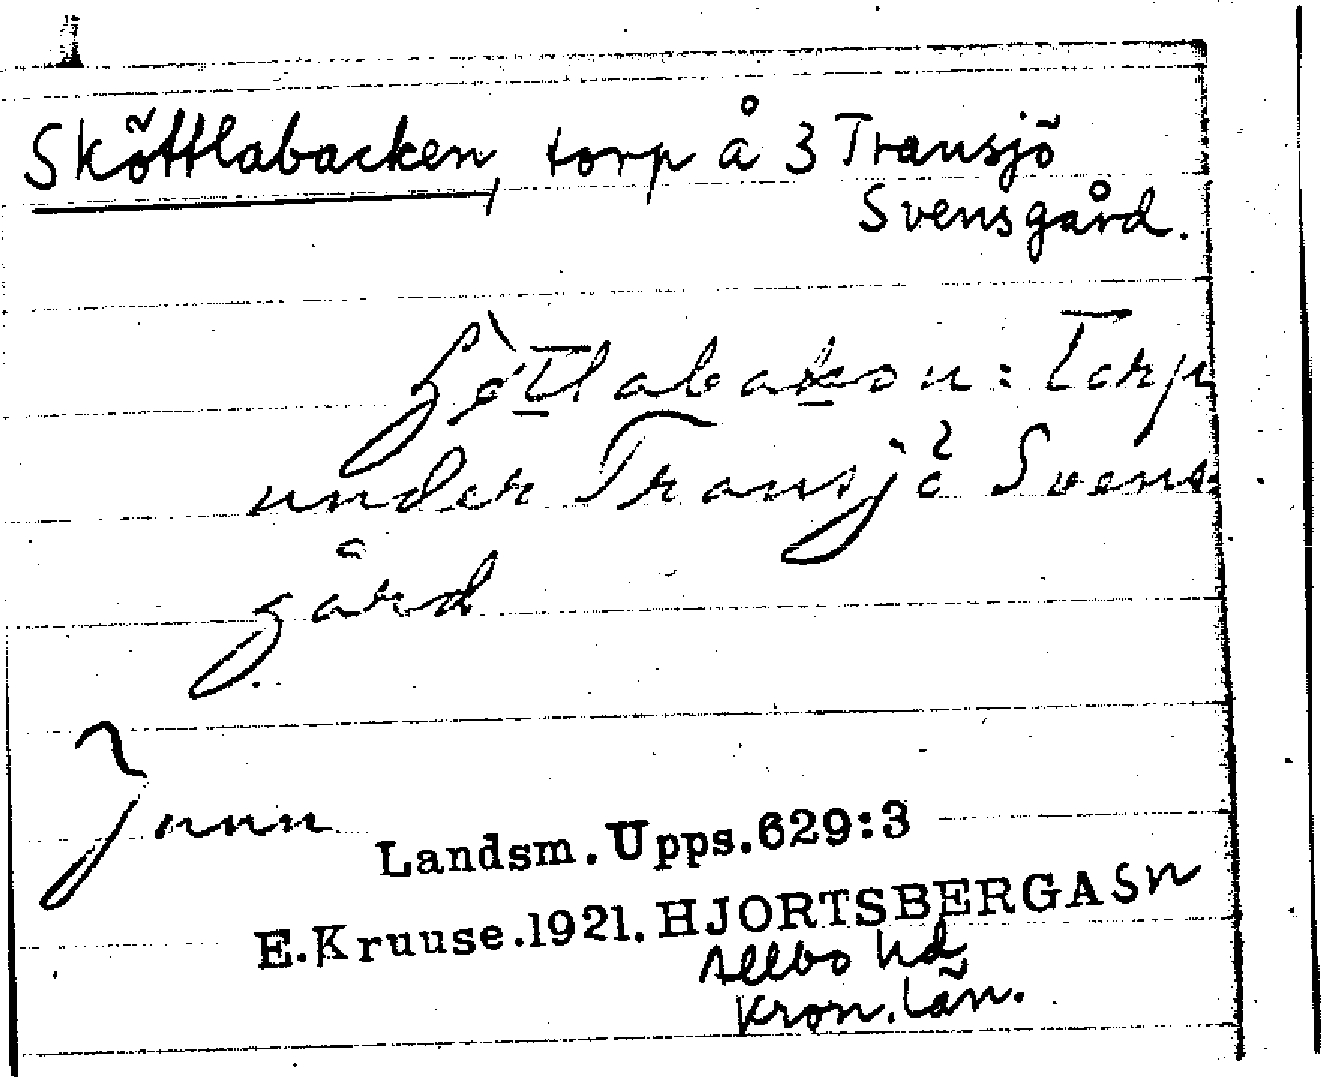 Sköttlabacken, torp å 3 Transjö
Svensgård.
: Torp
under Transjö Svens
gård
Landsm. Upps. 629:3
E. Kruuse. 1921. HJORTSBERGA sn
Allbo hd
Kron. län.